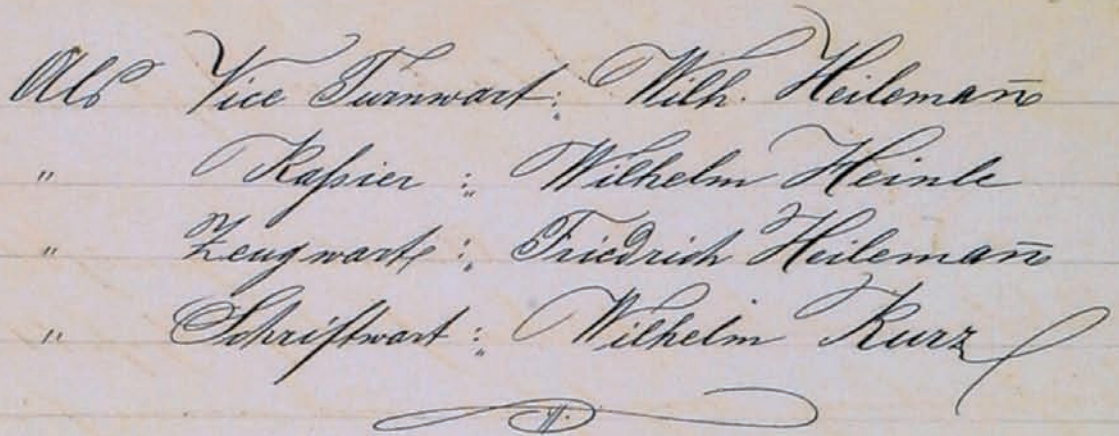 Als Vice Turnwart: Wilh. Heileman̄
" Kaßier: Wilhelm Heinle
" Zeugwart: Friedrich Heileman̄
" Schriftwart: Wilhelm Kurz